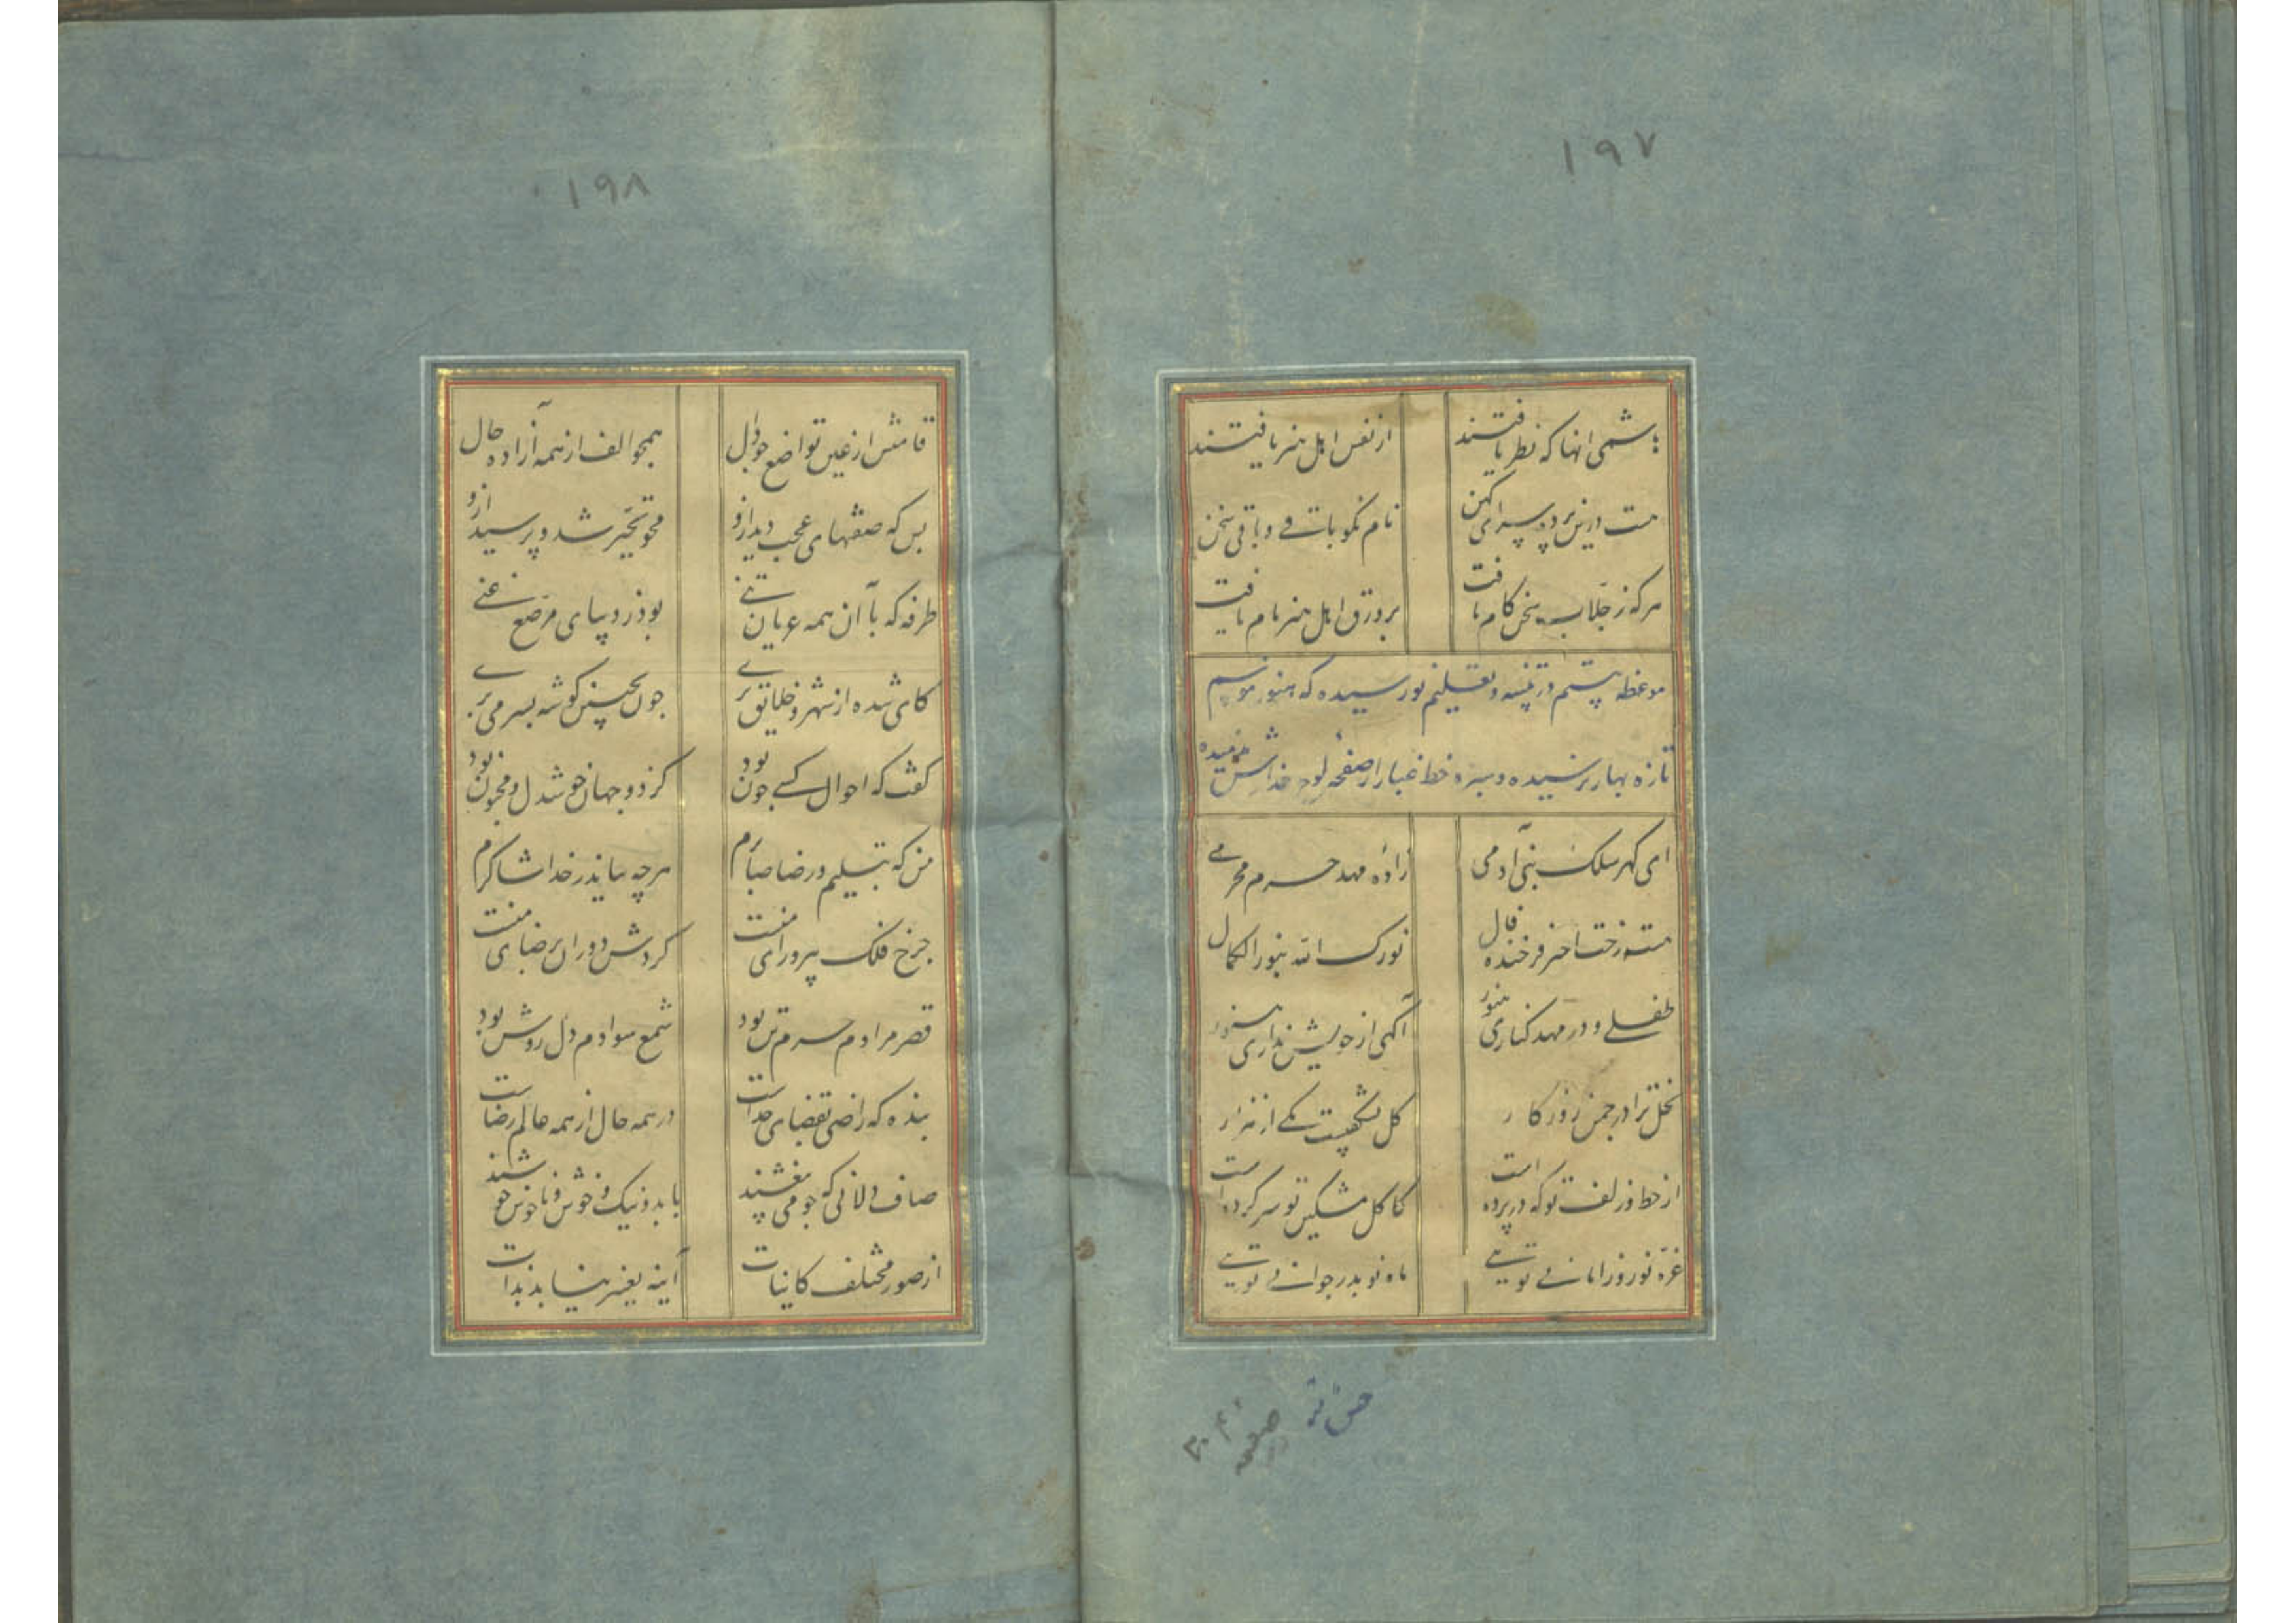 ۱۹۷
هاشمی انها که نظر یافتند از نفس اهل هنر یافتند
هست درین پرده سرای کهن نام نکو باقی و باقی سخن
هرکه ز جلاب سخن کام یافت بر ورق اهل هنر نام یافت
موعظه بیستم در تنبیه و تعلیم نورسیده که هنوز موسم
تازه بهار نرسیده و سبزه خط غبار از صفحه لوح عذارش ندمیده
ای گهر سلک بنی آدمی زادهٔ مهد حرم محرمی
هست رخت اختر فرخنده فال نورک الله بنور الکمال
طفلی و در مهد کناری هنوز آگهی از خویش نداری هنوز
نخل ترا در چمن روزکار کل نشکفتست یکی از هزار
از خط و زلف تو که در پرده است کاکل مشکین تو سر کرده است
غرهٔ نوروز امانی تویی ماه نو بدر جوانی تویی
۱۹۸
قامتش از عین تواضع چو دال همچو الف از همه آزاده حال
بس که صفتهای عجب دید ازو محو تحیر شد و پرسید ازو
طرفه که با آن همه عریان تنی بو ذر و پیدای مرصع غنی
کای شده از شهر و خلایق بری چون بچنین کوشه بسر می بری
گفت که احوال کسی چون بود کز دو جهان خوشدل و محزون بود
من که بتسلیم و رضا صابرم هرچه بیاید ز خدا شاکرم
چرخ فلک پیرو رای منست کردش دوران برضای منست
قصر مرادم حرم تن بود شمع سوادم دل روشن بود
بنده که راضی بقضای خداست در همه حال از همه عالم رضاست
صاف دلانی که چو می بیغشند با بد و نیک و خوش و ناخوش خوشند
از صور مختلف کاینات آینه تغییر نیابد بذات
صفحه